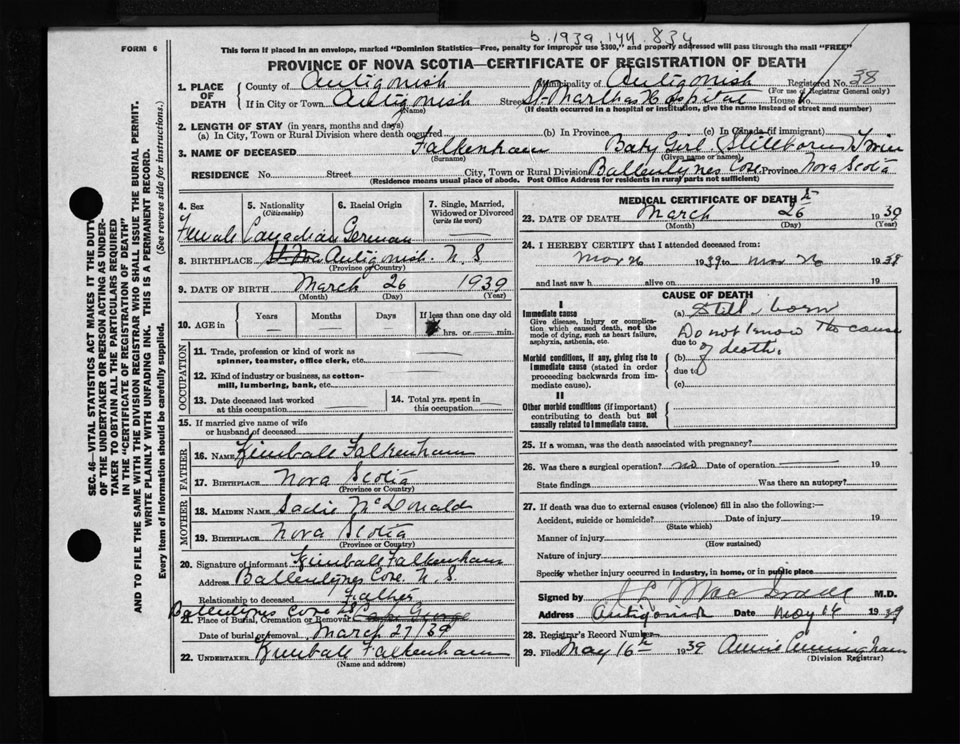 b. 1939, 144, 834
FORM 6
This form if placed in an envelope, marked "Dominion Statistics—Free, penalty for improper use $300," and properly addressed will pass through the mail "FREE"
PROVINCE OF NOVA SCOTIA—CERTIFICATE OF REGISTRATION OF DEATH
1. PLACE OF DEATH
County of Antigonish Municipality of Antigonish Registered No. 38
(For use of Registrar General only)
If in City or Town Antigonish Street St. Marthas Hospital House No.
(Name) (If death occurred in a hospital or institution, give the name instead of street and number)
2. LENGTH OF STAY (in years, months and days)
(a) In City, Town or Rural Division where death occurred (b) In Province (c) In Canada (if immigrant)
3. NAME OF DECEASED Falkenham Baby Girl (Stillborn) Twin
(Surname) (Given name or names)
RESIDENCE No. Street City, Town or Rural Division Ballentynes Cove Province Nova Scotia
(Residence means usual place of abode. Post Office Address for residents in rural parts not sufficient)
4. Sex
Female
5. Nationality
(Citizenship)
Canadian
6. Racial Origin
German
7. Single, Married, Widowed or Divorced
(write the word)
8. BIRTHPLACE Antigonish. N. S.
(Province or Country)
9. DATE OF BIRTH March 26 1939
(Month) (Day) (Year)
10. AGE in Years Months Days If less than one day old
hrs. or min.
OCCUPATION
11. Trade, profession or kind of work as
spinner, teamster, office clerk, etc.
12. Kind of industry or business, as cotton-
mill, lumbering, bank, etc.
13. Date deceased last worked
at this occupation
14. Total yrs. spent in
this occupation
15. If married give name of wife
or husband of deceased
FATHER
16. NAME Kimball Falkenham
17. BIRTHPLACE Nova Scotia
(Province or Country)
MOTHER
18. MAIDEN NAME Sadie McDonald
19. BIRTHPLACE Nova Scotia
(Province or Country)
20. Signature of informant Kimball Falkenham
Address Ballentynes Cove. N. S.
Relationship to deceased Father
Ballentynes Cove NS
21. Place of Burial, Cremation or Removal Cape George
Date of burial or removal March 27/39
22. UNDERTAKER Kimball Falkenham
(Name and address)
MEDICAL CERTIFICATE OF DEATH
23. DATE OF DEATH March 26 1939
(Month) (Day) (Year)
24. I HEREBY CERTIFY that I attended deceased from:
Mar 26 1939 to Mar 26 1938
and last saw h alive on 19
CAUSE OF DEATH
I
Immediate cause
Give disease, injury or complica-
tion which caused death, not the
mode of dying, such as heart failure,
asphyxia, asthenia, etc.
(a) Still born
Do not know the cause
due to of death.
Morbid conditions, if any, giving rise to
immediate cause (stated in order
proceeding backwards from im-
mediate cause).
(b)
due to
(c)
II
Other morbid conditions (if important)
contributing to death but not
causally related to immediate cause.
25. If a woman, was the death associated with pregnancy?
26. Was there a surgical operation? no Date of operation 19
State findings Was there an autopsy?
27. If death was due to external causes (violence) fill in also the following:—
Accident, suicide or homicide? Date of injury 19
(State which)
Manner of injury
(How sustained)
Nature of injury
Specify whether injury occurred in industry, in home, or in public place
Signed by M.D.
Address Antigonish Date May 1939
28. Registrar's Record Number
29. Filed May 16th 1939 Annie Cunningham
(Division Registrar)
SEC. 46—VITAL STATISTICS ACT MAKES IT THE DUTY
OF THE UNDERTAKER OR PERSON ACTING AS UNDER-
TAKER TO OBTAIN ALL THE PARTICULARS REQUIRED
IN THE "CERTIFICATE OF REGISTRATION OF DEATH"
AND TO FILE THE SAME WITH THE DIVISION REGISTRAR WHO SHALL ISSUE THE BURIAL PERMIT.
WRITE PLAINLY WITH UNFADING INK. THIS IS A PERMANENT RECORD.
Every item of information should be carefully supplied. (See reverse side for instructions.)